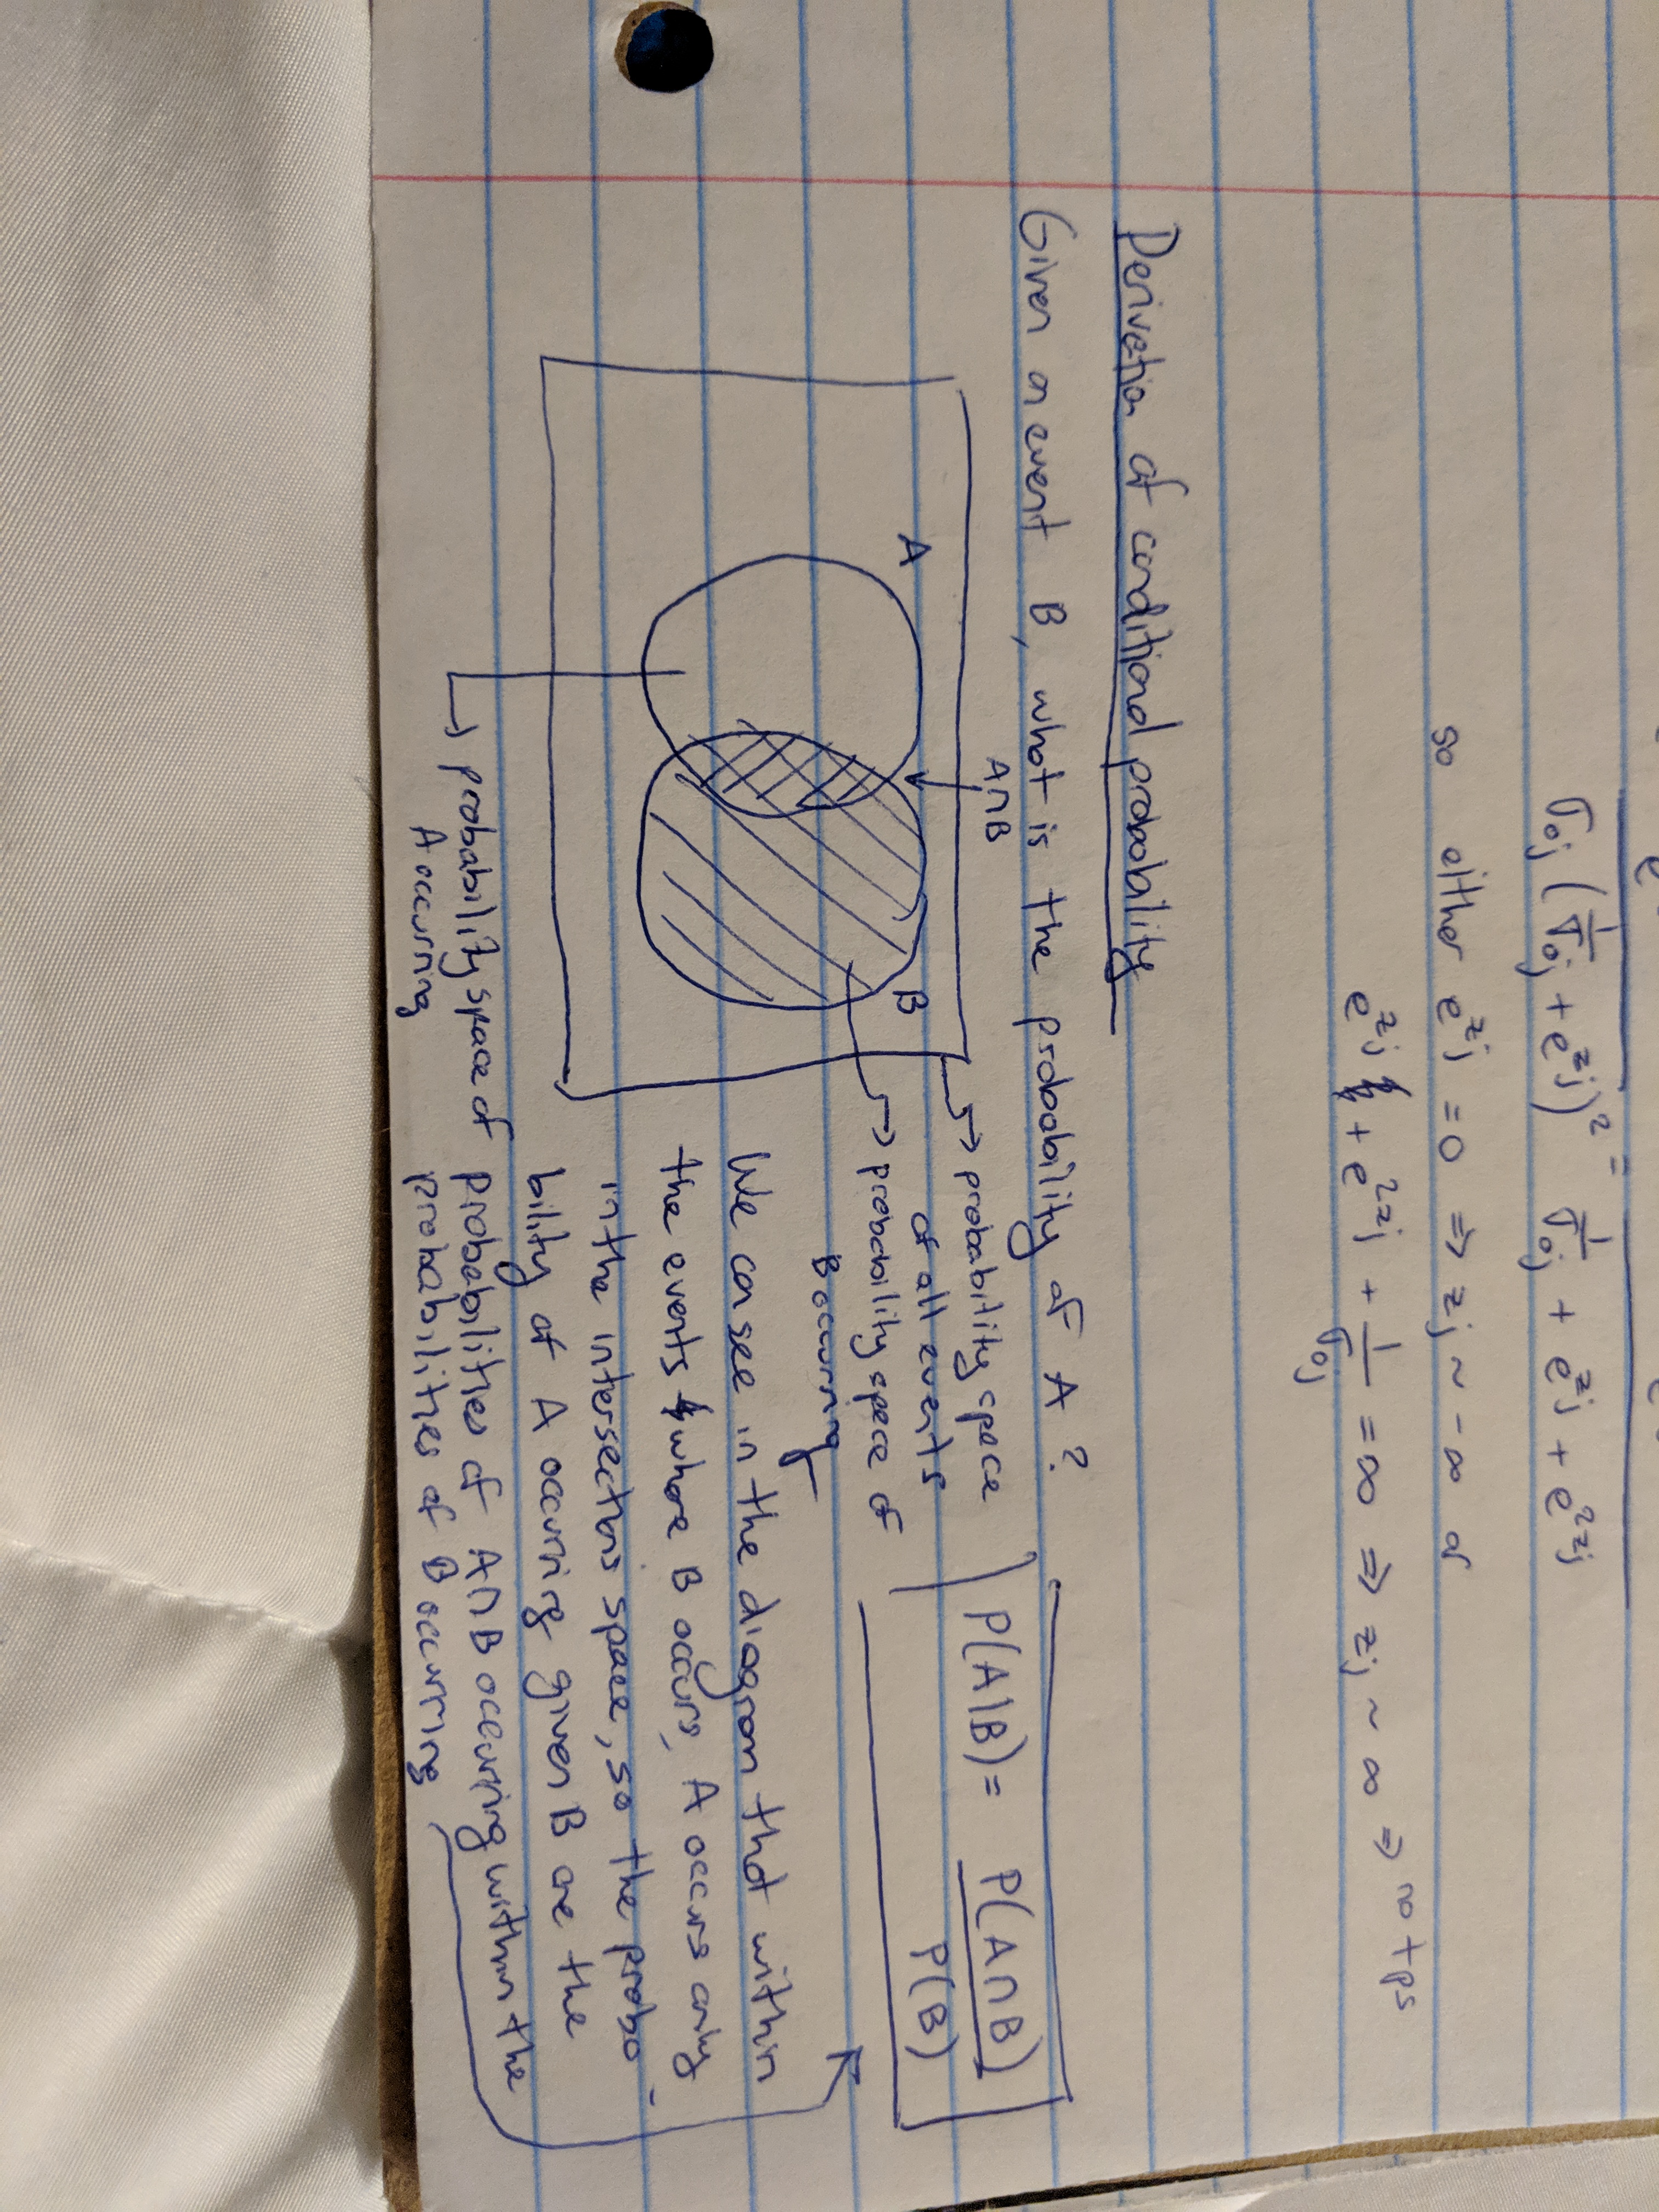 σ₀ⱼ (1/σ₀ⱼ + e^zj)² = 1/σ₀ⱼ + e^zj + e^2zj
so either e^zj = 0 ⇒ zj ~ -∞ or
e^zj + e^2zj + 1/σ₀ⱼ = ∞ ⇒ zj ~ ∞ ⇒ no tps
Derivation of conditional probability
Given an event B, what is the probability of A?
A∩B
A
B
→ probability space
of all events
→ probability space of
B occurring
P(A|B) = P(A∩B)
P(B)
We can see in the diagram that within
the events where B occurs, A occurs only
in the intersections space, so the proba-
bility of A occuring given B are the
probabilities of A∩B occuring within the
probabilities of B occurring
→ probability space of
A occurring